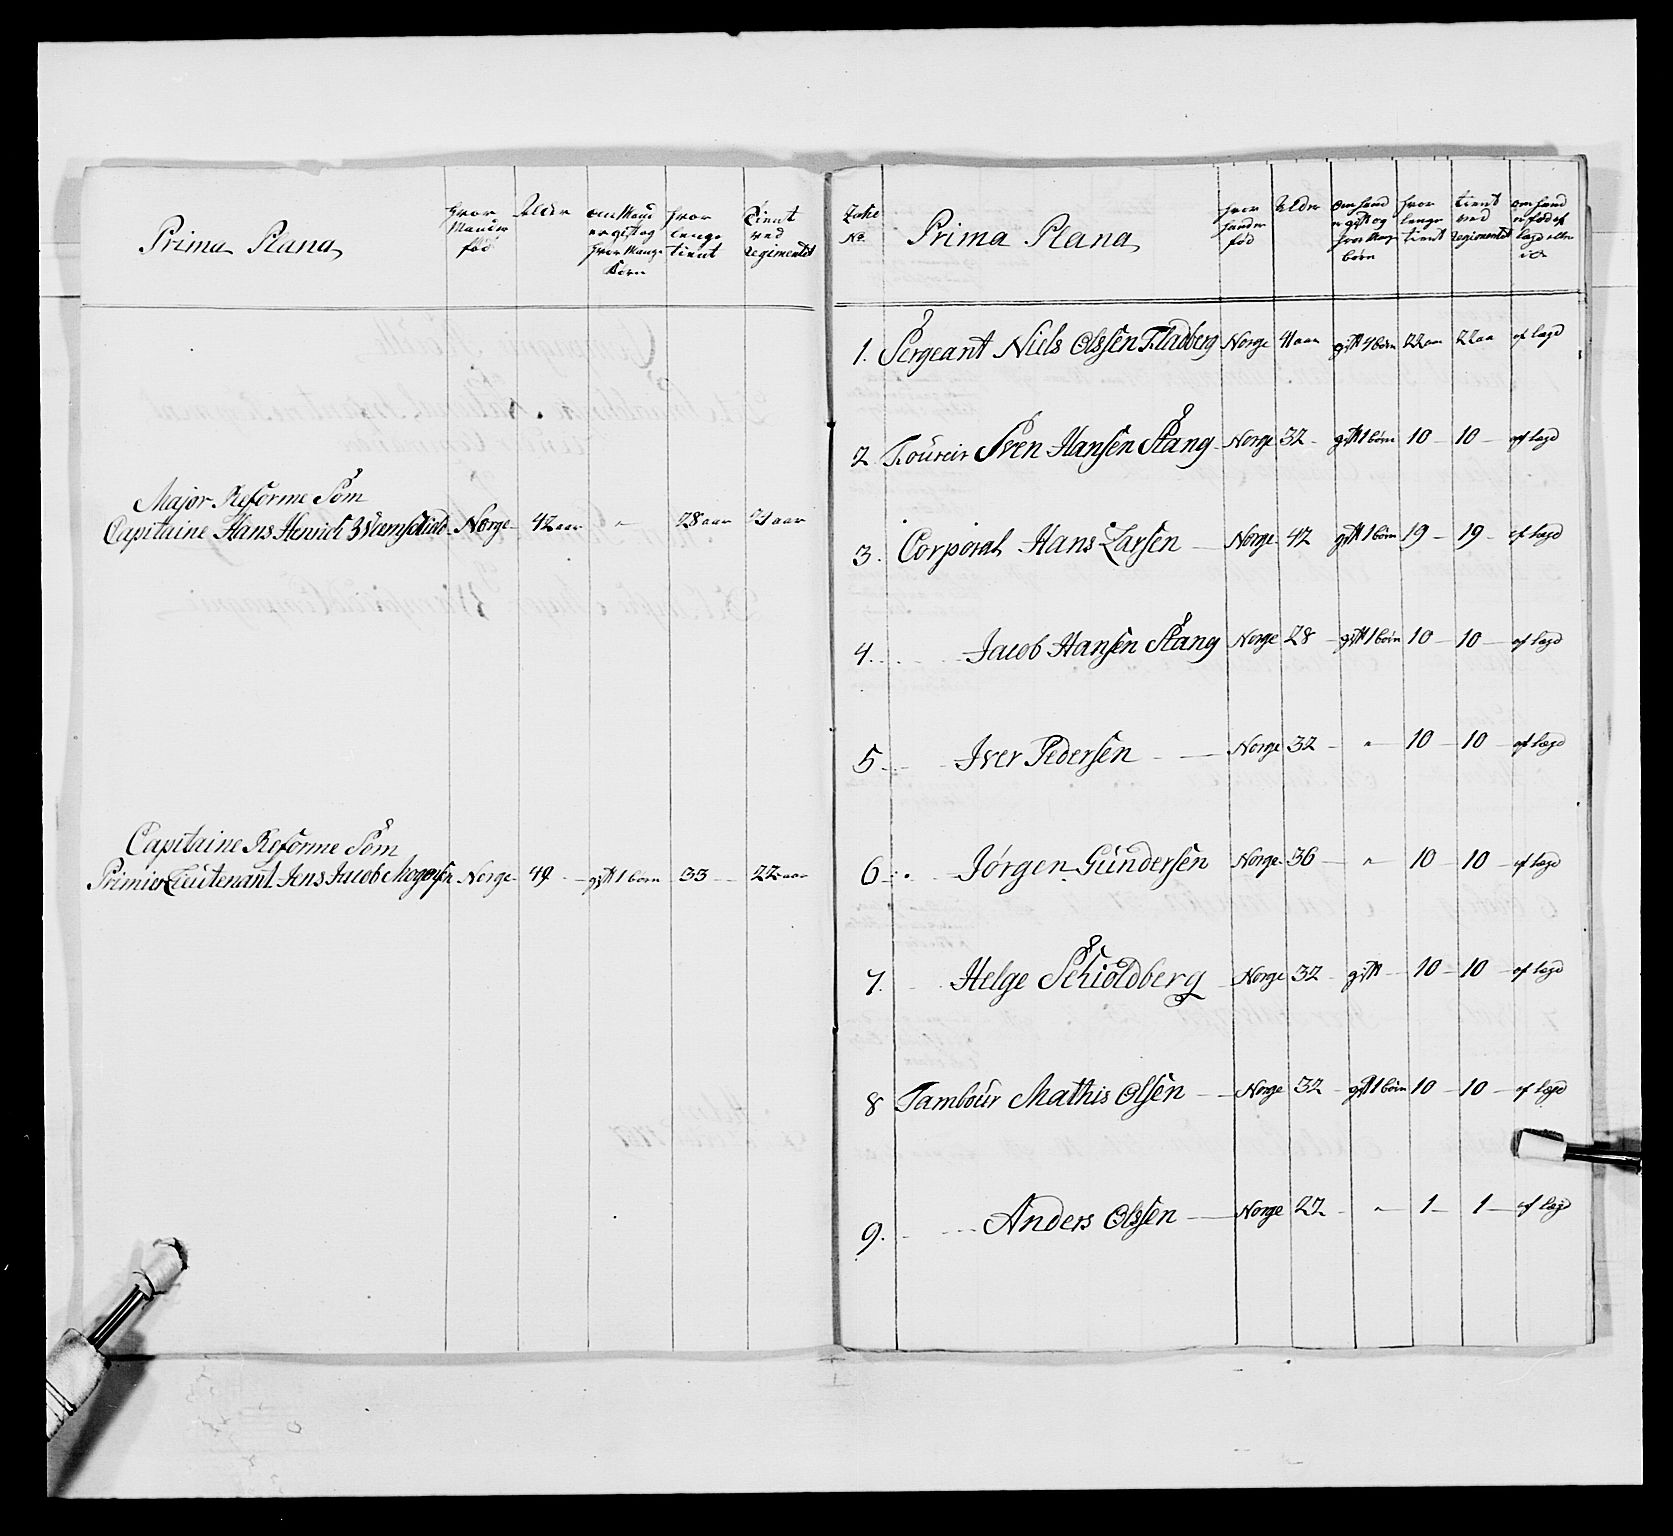 Prima Plana
hvor
Mand er
föd
Alder
om Mand
er gift og
hvor Mange
Börn
hvor
lenge
tient
Tient
ved
Regimentet
Major Reforme Som
Capitaine Hans Henrich Norge 42 aar " 28 aar 21 aar
Capitaine Reforme Som
Premier Lieutenant Jens Jacob Mogensen Norge 49 gift 1 börn 33 22 aar
No
Prima Plana
hvor
hand er
föd
Alder
om hand
er gift og
hvor Mange
börn
hvor
lenge
tient
tient
ved
Regimentet
om hand
er föd af
lægd eller
ich
1. Sergeant Niels Olssen Fladberg Norge 41 aar gift 4 börn 22 aar 22 aa af lægd
2 Foureir Sven Hansen Stang Norge 32 gift 1 börn 10 10 af lægd
3. Corporal Hans Larsen Norge 42 gift 1 börn 19 19 af lægd
4. Jacob Hansen Stang Norge 28 gift 1 börn 10 10 af lægd
5 Iver Pedersen Norge 32 " 10 10 af lægd
6 Jörgen Gundersen Norge 36 " 10 10 af lægd
7. Helge Schioldberg Norge 32 gift 10 10 af lægd
8 Tambour Mathis Olsen Norge 32 gift 1 börn 10 10 af lægd
9. Anders Olssen Norge 27 " 1 1 af lægd